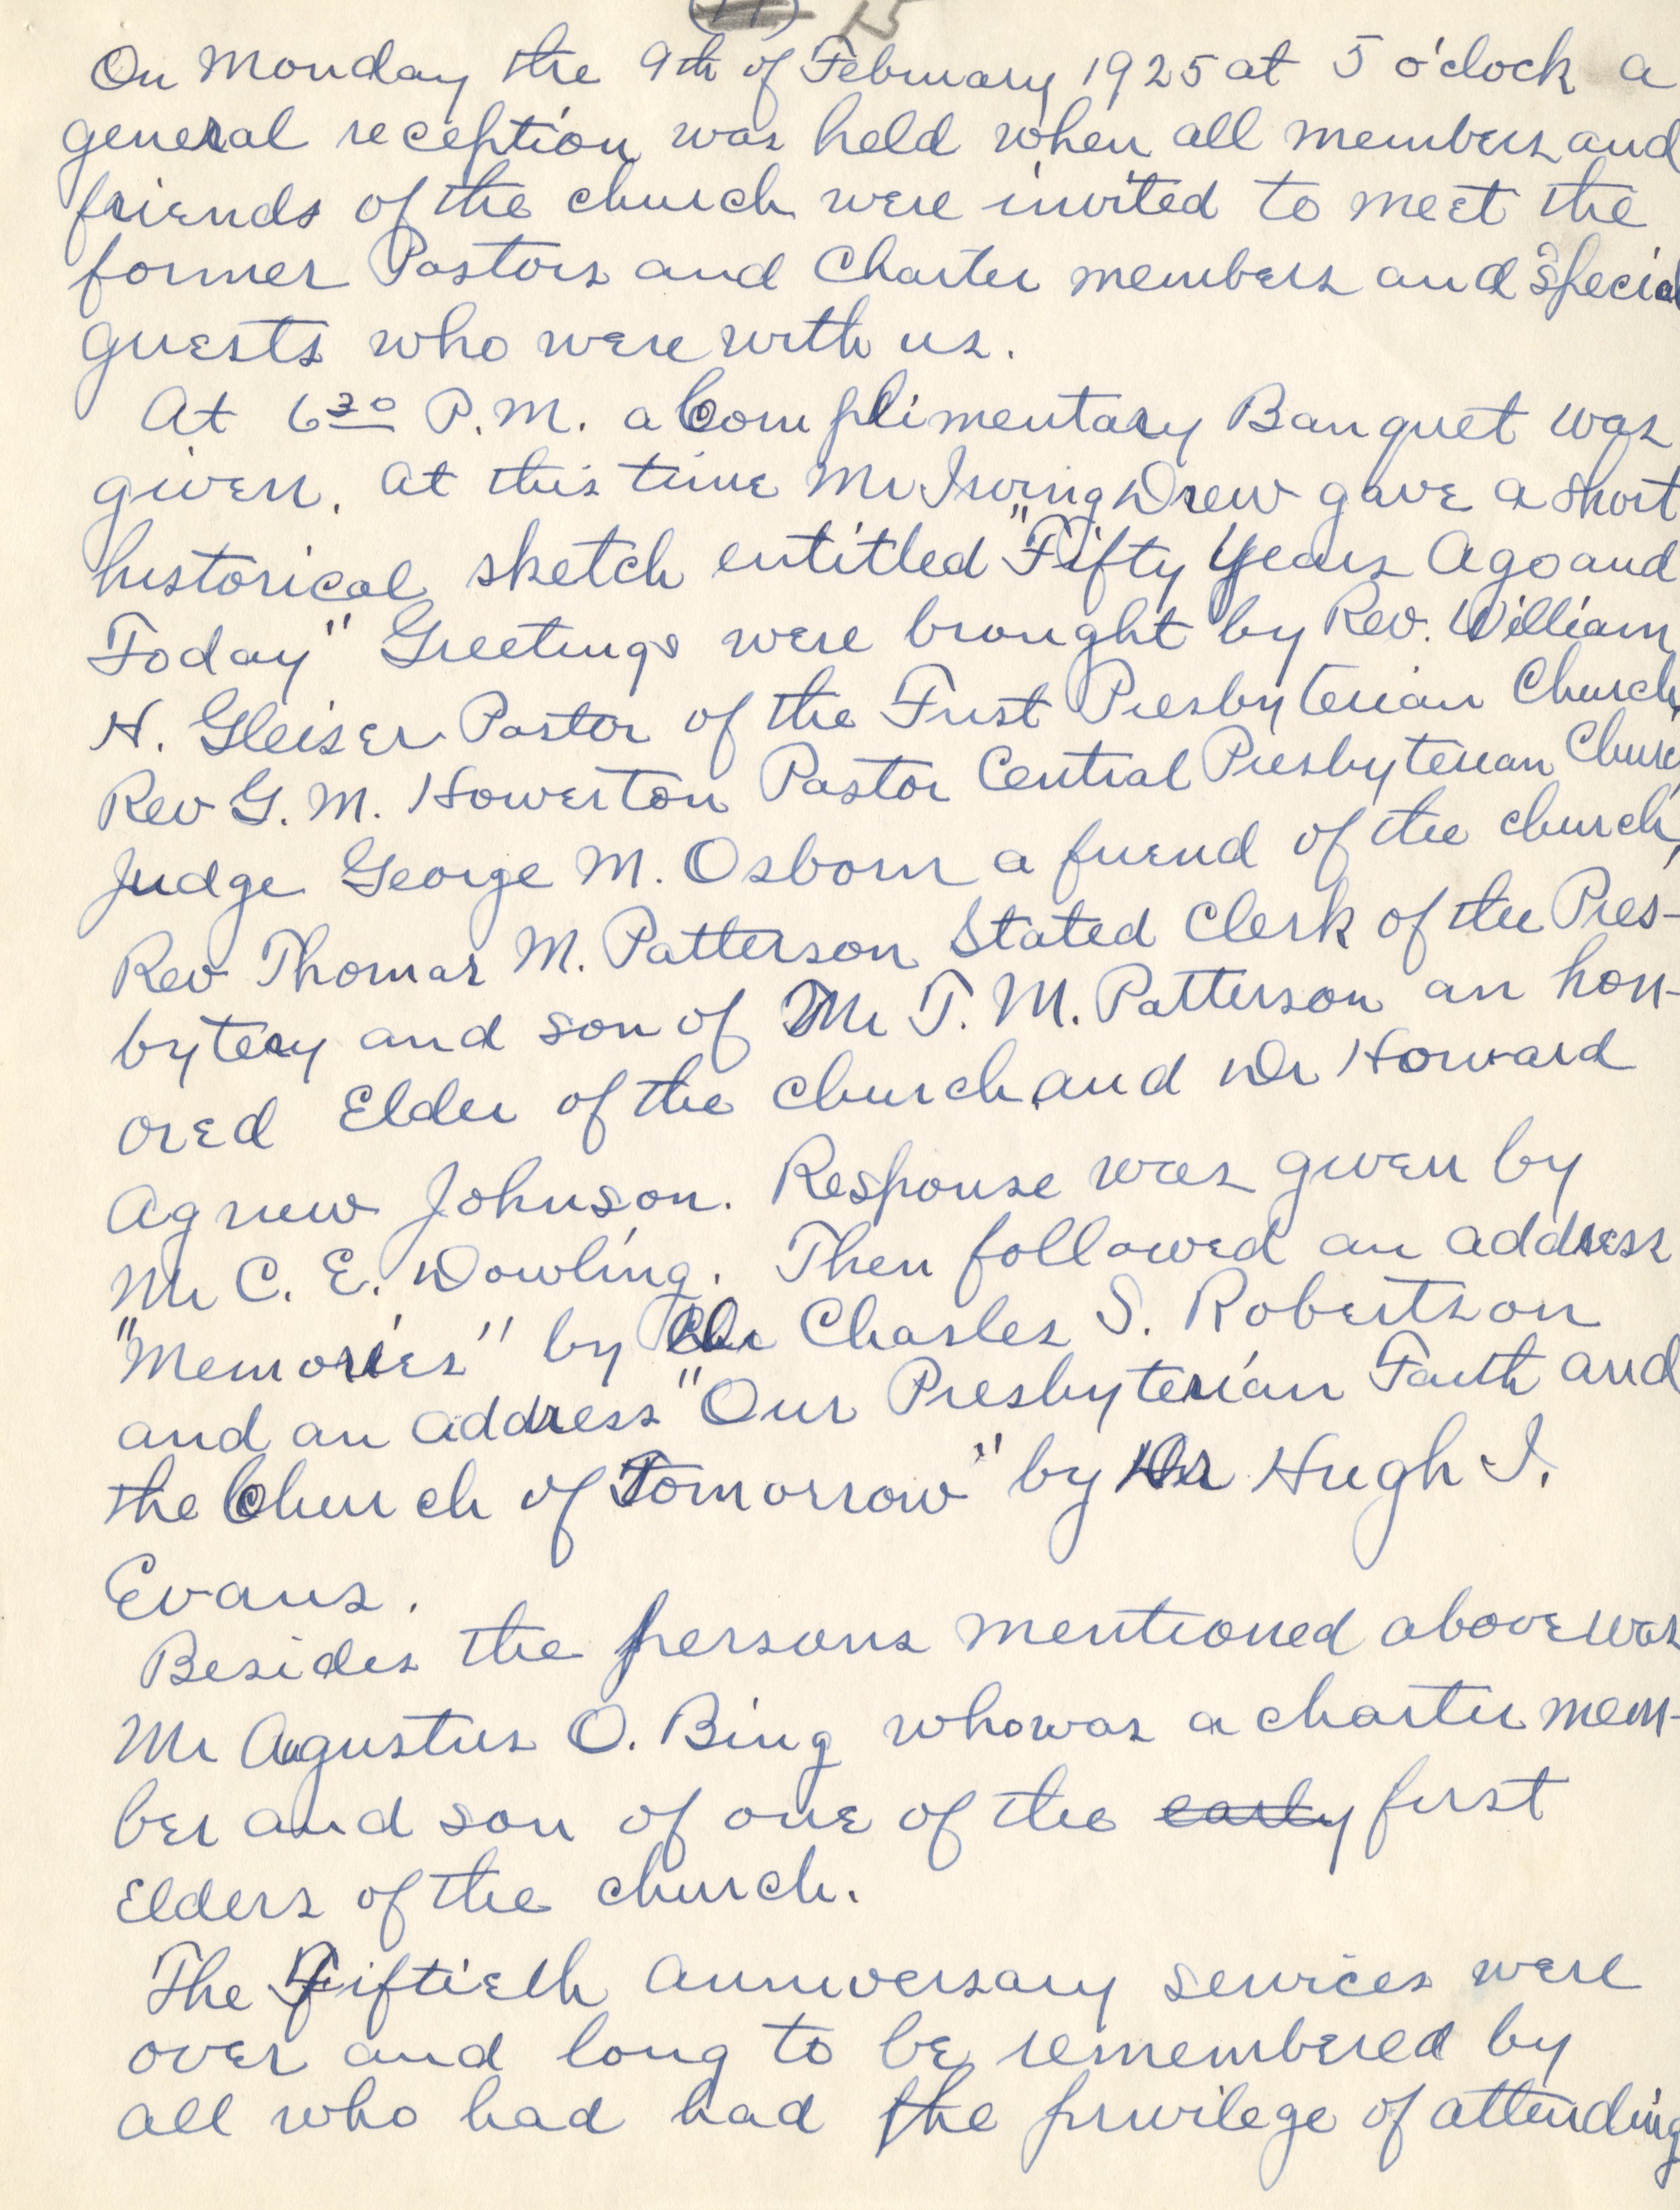 15
On Monday the 9th of February 1925 at 5 o'clock a
general reception was held when all members and
friends of the church were invited to meet the
former Pastors and Charter members and special
guests who were with us.
At 6 30 P.M. a Complimentary Banquet was
given. At this time Mr Irving Drew gave a short
historical sketch entitled "Fifty Years Ago and
Today" Greetings were brought by Rev. William
H. Gleiser Pastor of the First Presbyterian Church,
Rev G. M. Howerton Pastor Central Presbyterian Church,
Judge George M. Osborn a friend of the church,
Rev Thomas M. Patterson Stated Clerk of the Pres-
bytery and son of Mr T. M. Patterson an hon-
ored Elder of the church and Dr Howard
Agnew Johnson. Response was given by
Mr C. E. Dowling. Then followed an address
"Memories" by Charles S. Robertson
and an address "Our Presbyterian Faith and
the Church of Tomorrow" by Dr Hugh I.
Evans.
Besides the persons mentioned above was
Mr Augustus O. Bing who was a charter mem-
ber and son of one of the early first
Elders of the church.
The Fiftieth Anniversary services were
over and long to be remembered by
all who had had the privilege of attending